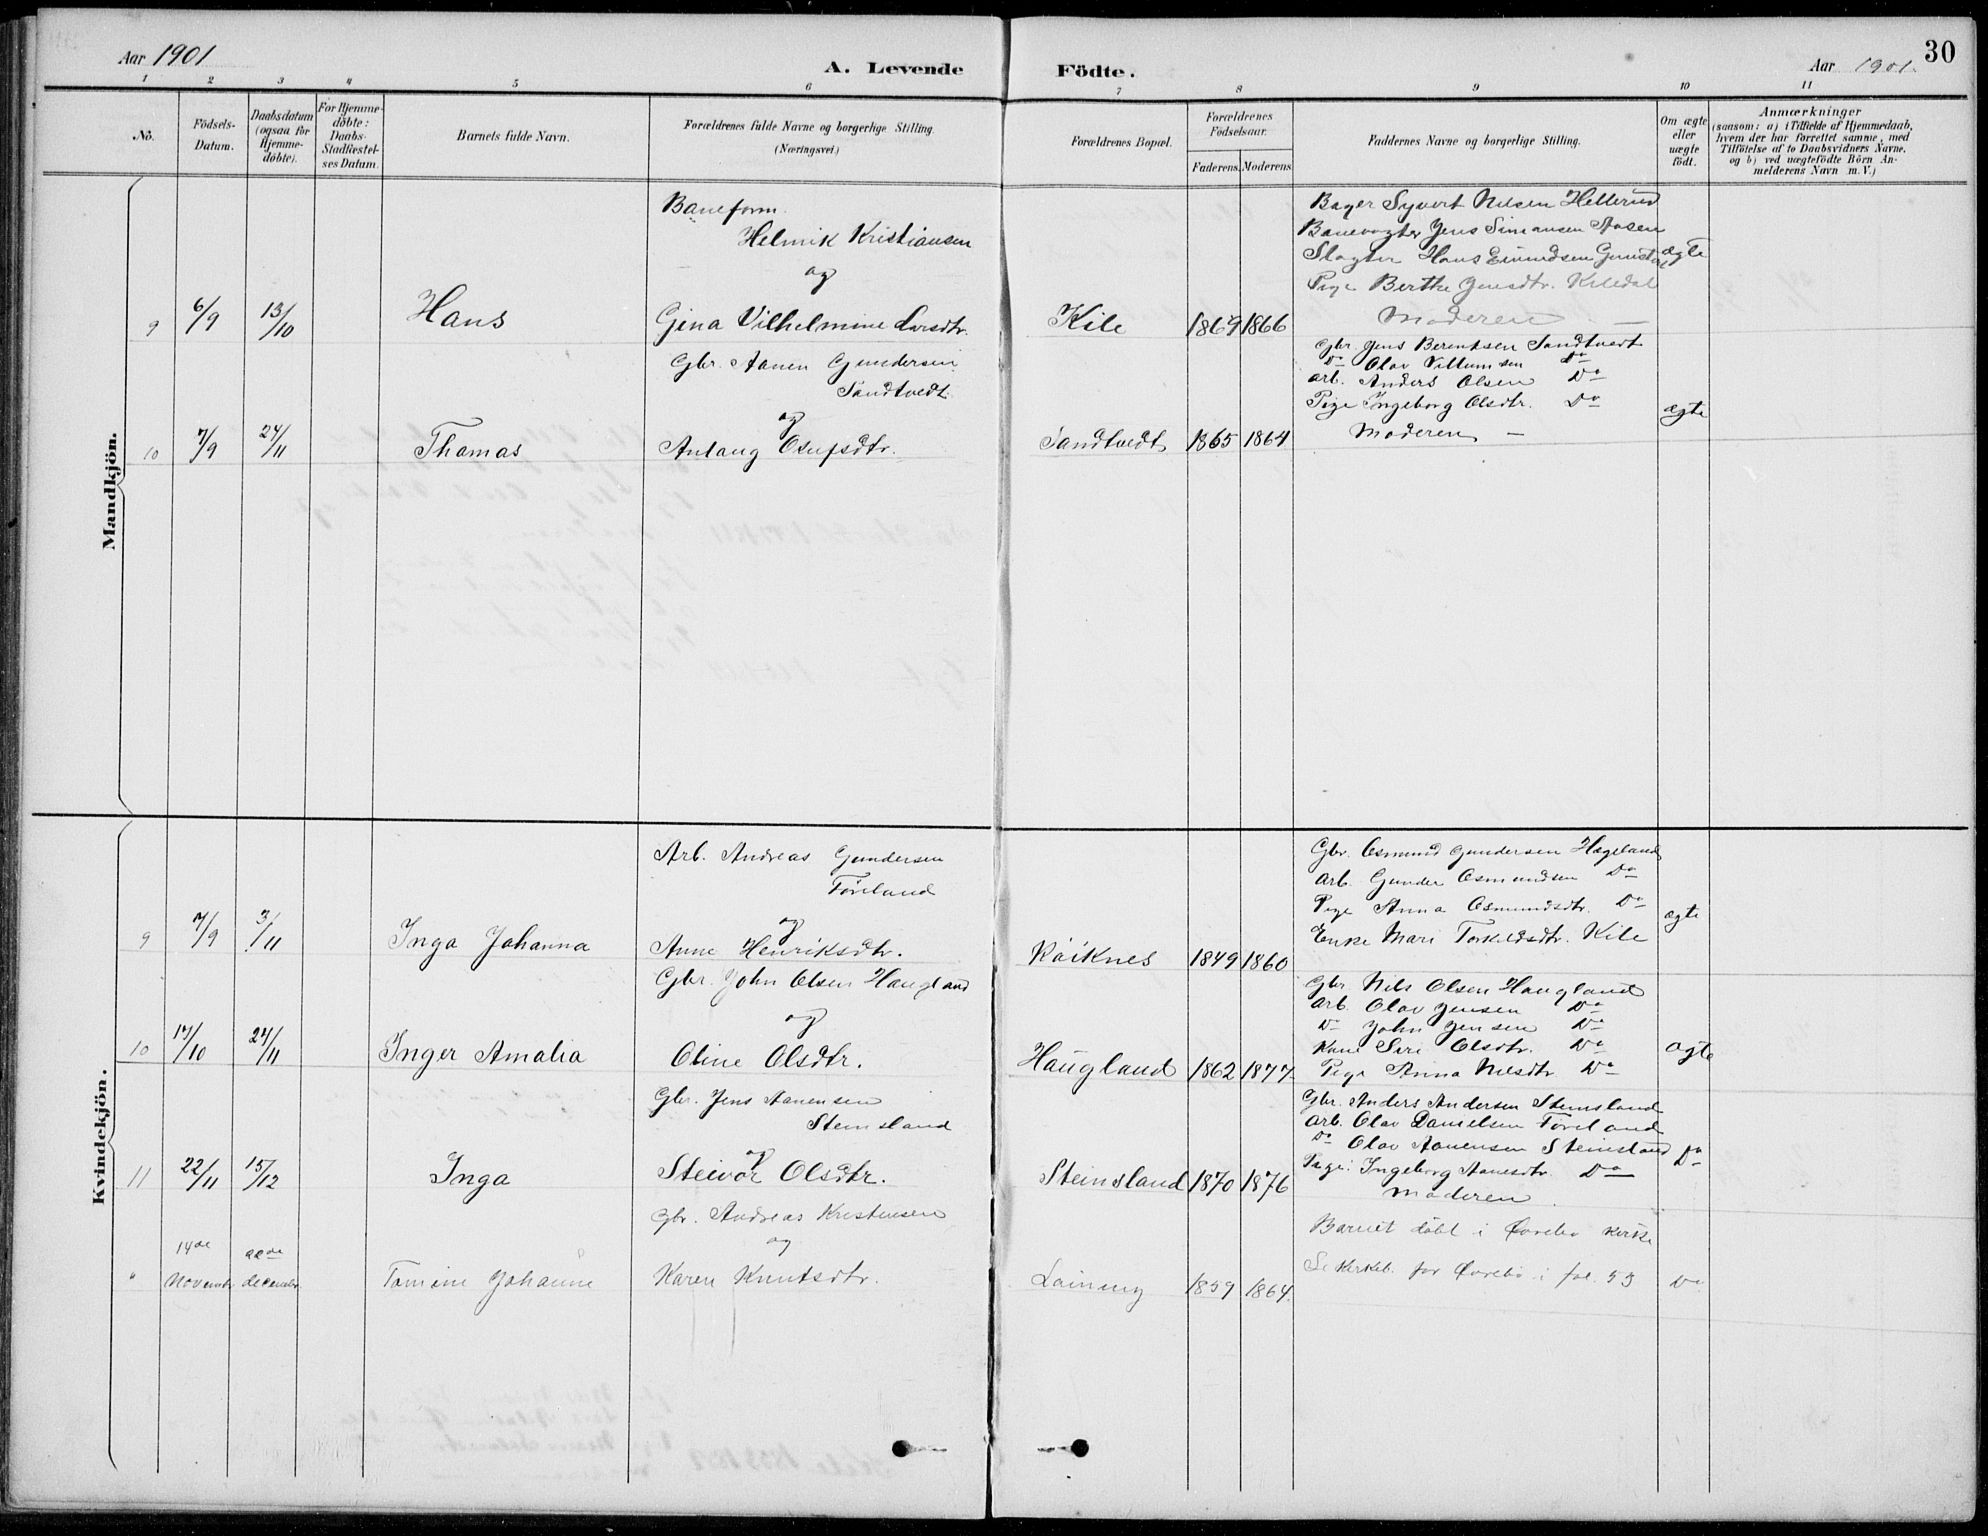 Aar 1901
A. Levende
Födte.
Aar 1901.
30
1 2 3 4 5 6 7 8 9 10 11
No.
Födsels-
Datum.
Daabsdatum
(ogsaa for
Hjemme-
döbte).
For Hjemme-
döbte:
Daabs-
Stadfæstel-
ses Datum.
Barnets fulde Navn.
Forældrenes fulde Navne og borgerlige Stilling.
(Næringsvei.)
Forældrenes Bopæl.
Forældrenes
Födselsaar.
Faderens. Moderens.
Faddernes Navne og borgerlige Stilling.
Om ægte
eller
uægte
födt.
Anmærkninger
(saasom: a) i Tilfælde af Hjemmedaab,
hvem der har forrettet samme, med
Tilföielse af to Daabsvidners Navne,
og b) ved uægtefödte Börn An-
melderens Navn m. V.)
Mandkjön.
Baneform.
Helmik Kristiansen
og
9 6/9 13/10 Hans Gina Vilhelmine Larsdtr. Kile 1869 1866
Bager Syvert Nilsen Hellerud
Banevogter Jens Simonsen Aasen
Slagter Hans Eivindsen
Pige Berthe Jensdtr. Kiledal
Moderen —
ægte
Gbr. Aanen Gundersen
Sandtvedt
og
10 7/9 24/11 Thomas Anlaug Osufsdtr. Sandtvedt 1865 1864
Gbr. Jens Berentsen Sandtvedt
Do Olav Villumsen Do
Arb. Anders Olsen Do
Pige Ingeborg Olsdtr. Do
Moderen —
ægte
Kvindekjön.
Arb. Andreas Gundersen
Föreland
og
9 7/9 3/11 Inga Johanna Anne Henriksdtr. Röiknes 1849 1860
Gbr. Osmund Gundersen Hægeland
Arb. Gunder Osmundsen Do
Pige Anna Osmundsdtr. Do
Enke Mari Torkeldsdtr. Kile
ægte
Gbr. John Olsen Haugland
og
10 17/10 24/11 Inger Amalia Oline Olsdtr. Haugland 1862 1877
Gbr Nils Olsen Haugland
Arb. Olav Jensen Do
Do John Jensen Do
Kone Siri Olsdtr. Do
Pige Anna Nilsdtr Do
ægte
Gbr. Jens Aanensen
Steinsland
og
11 22/11 15/12 Inga Steivor Olsdtr. Steinsland 1870 1876
Gbr. Anders Andersen Steinsland
Arb. Olav Danielsen Föreland
Do Olav Aanensen Steinsland
Pige Ingeborg Aanesdtr. Do
Moderen
Do
Gbr. Andreas Kristensen
og
" 14de Novembr december Tomine Johanne Karen Knutsdtr. 1859 1864
Barnet döbt i Övrebö kirke
Se Kirkeb. for Övrebö i fol. 53
Do